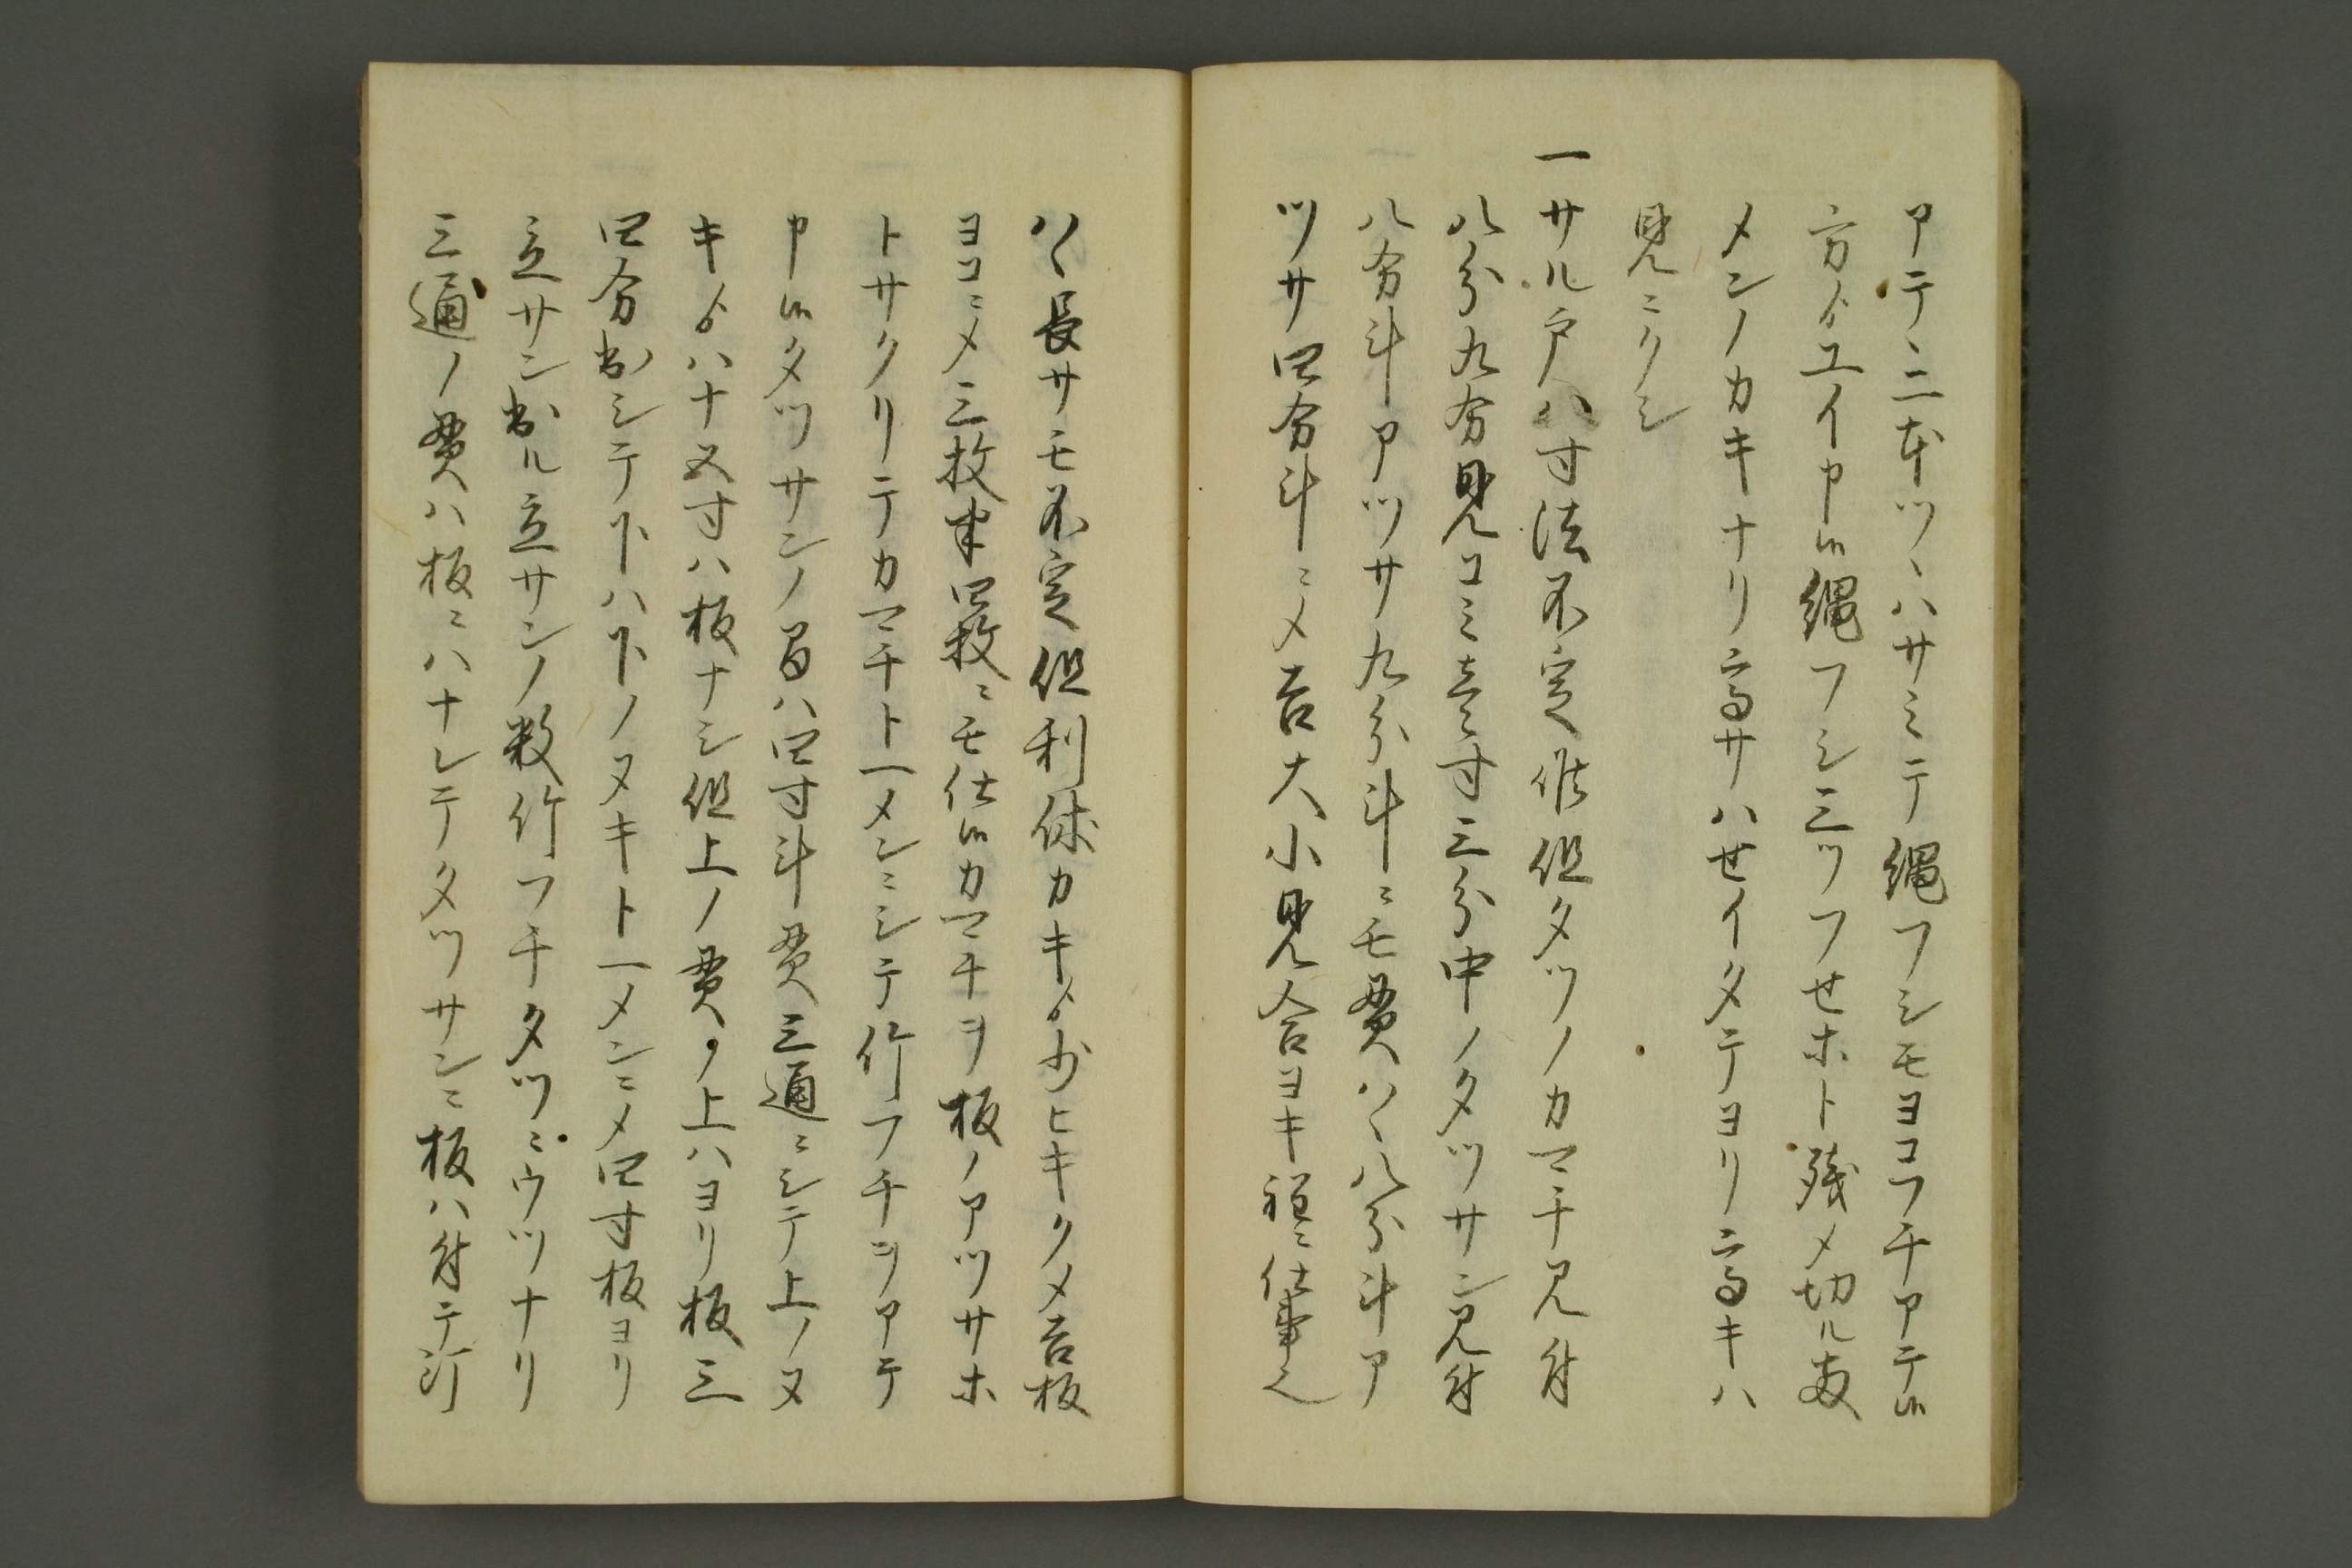 アテ、二本ツヽハサミテ縄フシモヨコフチアテ候
方ゟユイ申候縄フシ三ツフせホト残〆切ル真
メンノカキナリ高サハせイタテヨリ高キハ
見ニクシ
一サル戸ハ寸法不定候但タツノカマチ見付
八分九分見コミ壱寸三分中ノタツサン見付
八分斗アツサ九分斗ニモ貫ハヽ八分斗ア
ツサ四分斗ニ〆吉大小見合ヨキ程ニ仕事也
ハヽ長サモ不定但利休カキゟ少ヒキク〆吉板
ヨコニ〆三枚半四枚ニモ仕候カマチヲ板ノアツサホ
トサクリテカマチト一メンニシテ竹フチヲアテ
申候タツサンノ間ハ四寸斗貫三通ニシテ上ノヌ
キゟハナ五寸ハ板ナシ但上ノ貫ノ上ハヨリ板三
四分出シテ下ハ下ノヌキト一メンニ〆四寸板ヨリ
立サン出ル立サンノ数竹フチタツニウツナリ
三通ノ貫ハ板ニハナレテタツサンニ板ハ付テ釘